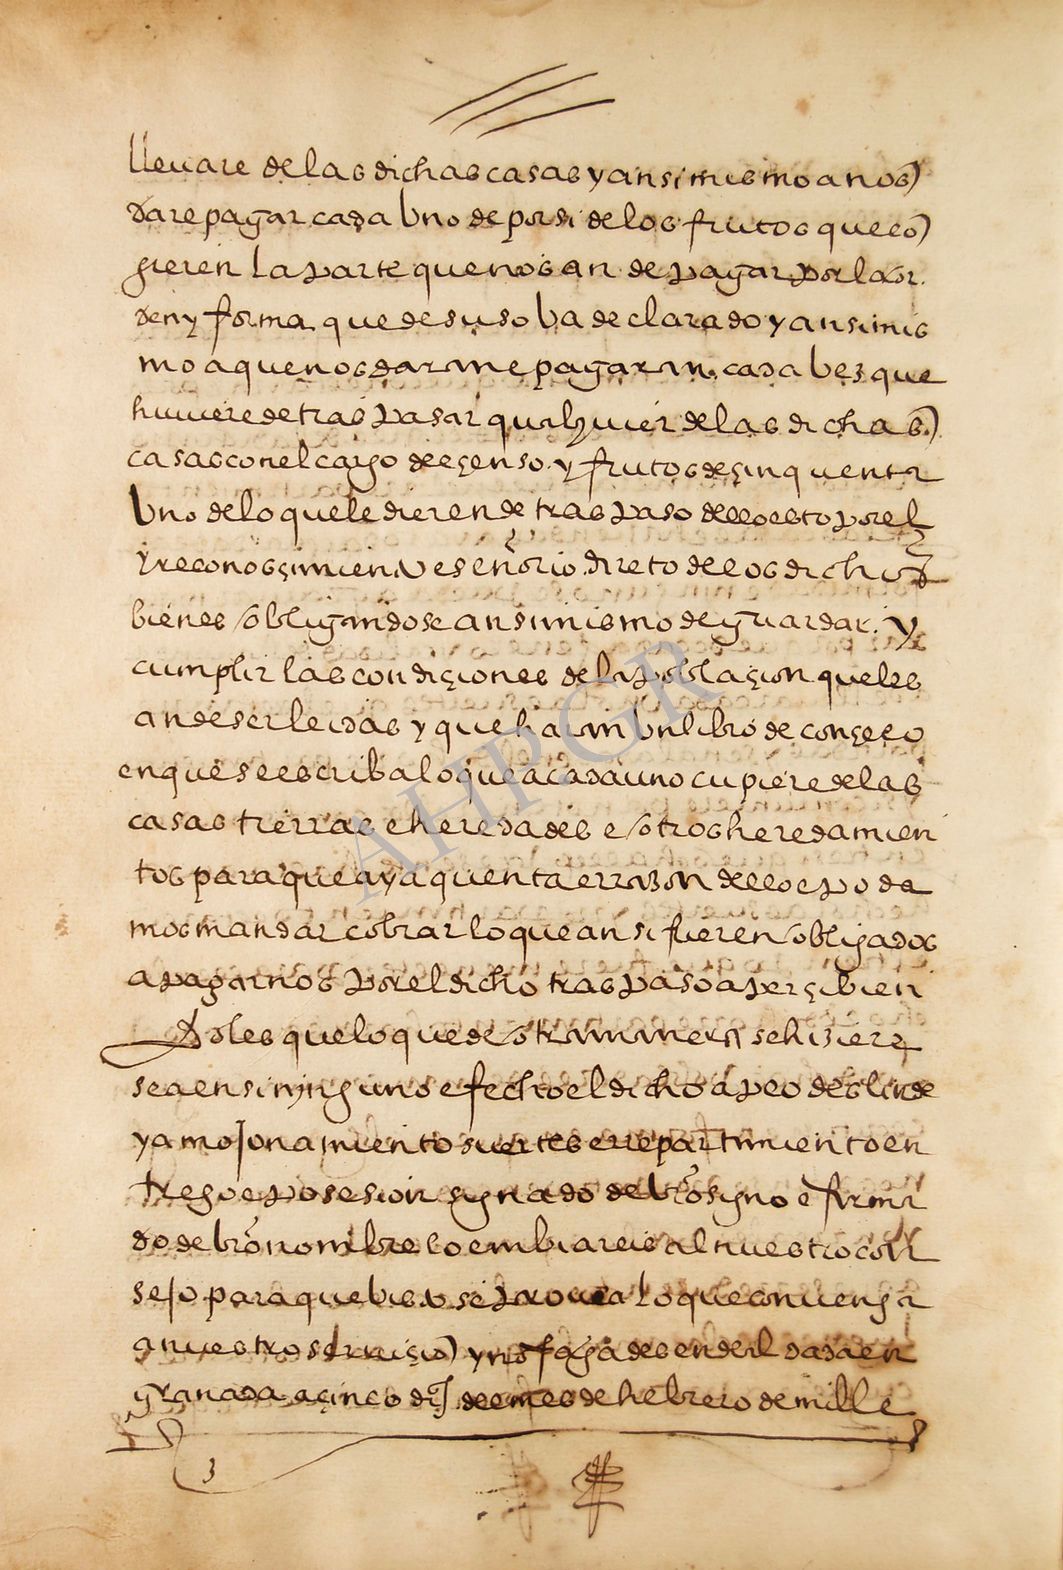 llevare de las dichas casas y ansi mismo a nos
dar e pagar cada uno de por si de los frutos que co
gieren la parte que nos an de pagar por la or
den y forma que de suso ba declarado y ansi mis
mo a que nos daran e pagaran cada bez que
huviere de traspasar qualquier de las dichas
casas con el cargo de çenso y frutos de çinquenta
uno de lo que le dieren de traspaso dello esto por el
y reconosçimiento e señorio direto de los dichos
bienes obligandose ansi mismo de guardar y
cumplir las condiçiones de la poblaçion que les
an de ser leidas y que haran un libro de conçejo
en que se escriba lo que a cada uno cupiere de las
casas tierras e heredades e otros heredamien
tos para que aya quenta e rrazon dello e poda
mos mandar cobrar lo que ansi fueren obligados
a pagarnos por el dicho traspaso aperçibien
doles que lo que de otra manera se hiziere
sea en si ninguno e fecho el dicho apeo deslinde
y amojonamiento suertes e rrepartimiento en
trego e posesion signado de bro signo e firma
do de bro nombre lo embiareis al nuestro con
sejo para que bisto se provea lo que convenga
a nuestro serviçio y no fagades ende al dada en
granada a çinco dias del mes de hebrero de mill e
3
AHPGR